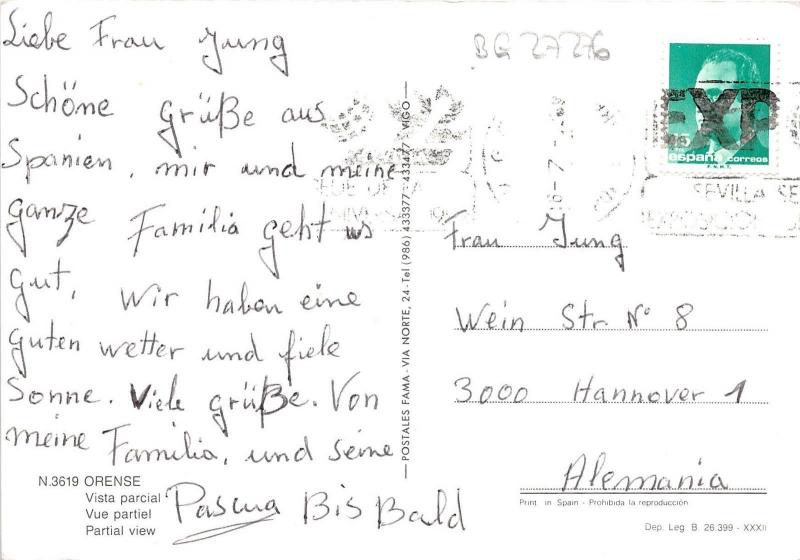 Liebe Frau Jung
Schöne grüße aus
Spanien, mir und meine
ganze Familia geht us
gut, wir haben eine
guten wetter und fiele
Sonne. Viele grüße. Von
meine Familia, und seine
Pascua Bis Bald
N.3619 ORENSE
Vista parcial
Vue partiel
Partial view
POSTALES FAMA - VIA NORTE, 24 - Tel (986) 433377 - 433477 - VIGO
BG 27276
españa correos
F.N.M.T.
EXP
SEVILLA
Frau Jung
Wein Str. Nº 8
3000 Hannover 1
Alemania
Print in Spain - Prohibida la reproducción
Dep. Leg. B. 26.399 - XXXII